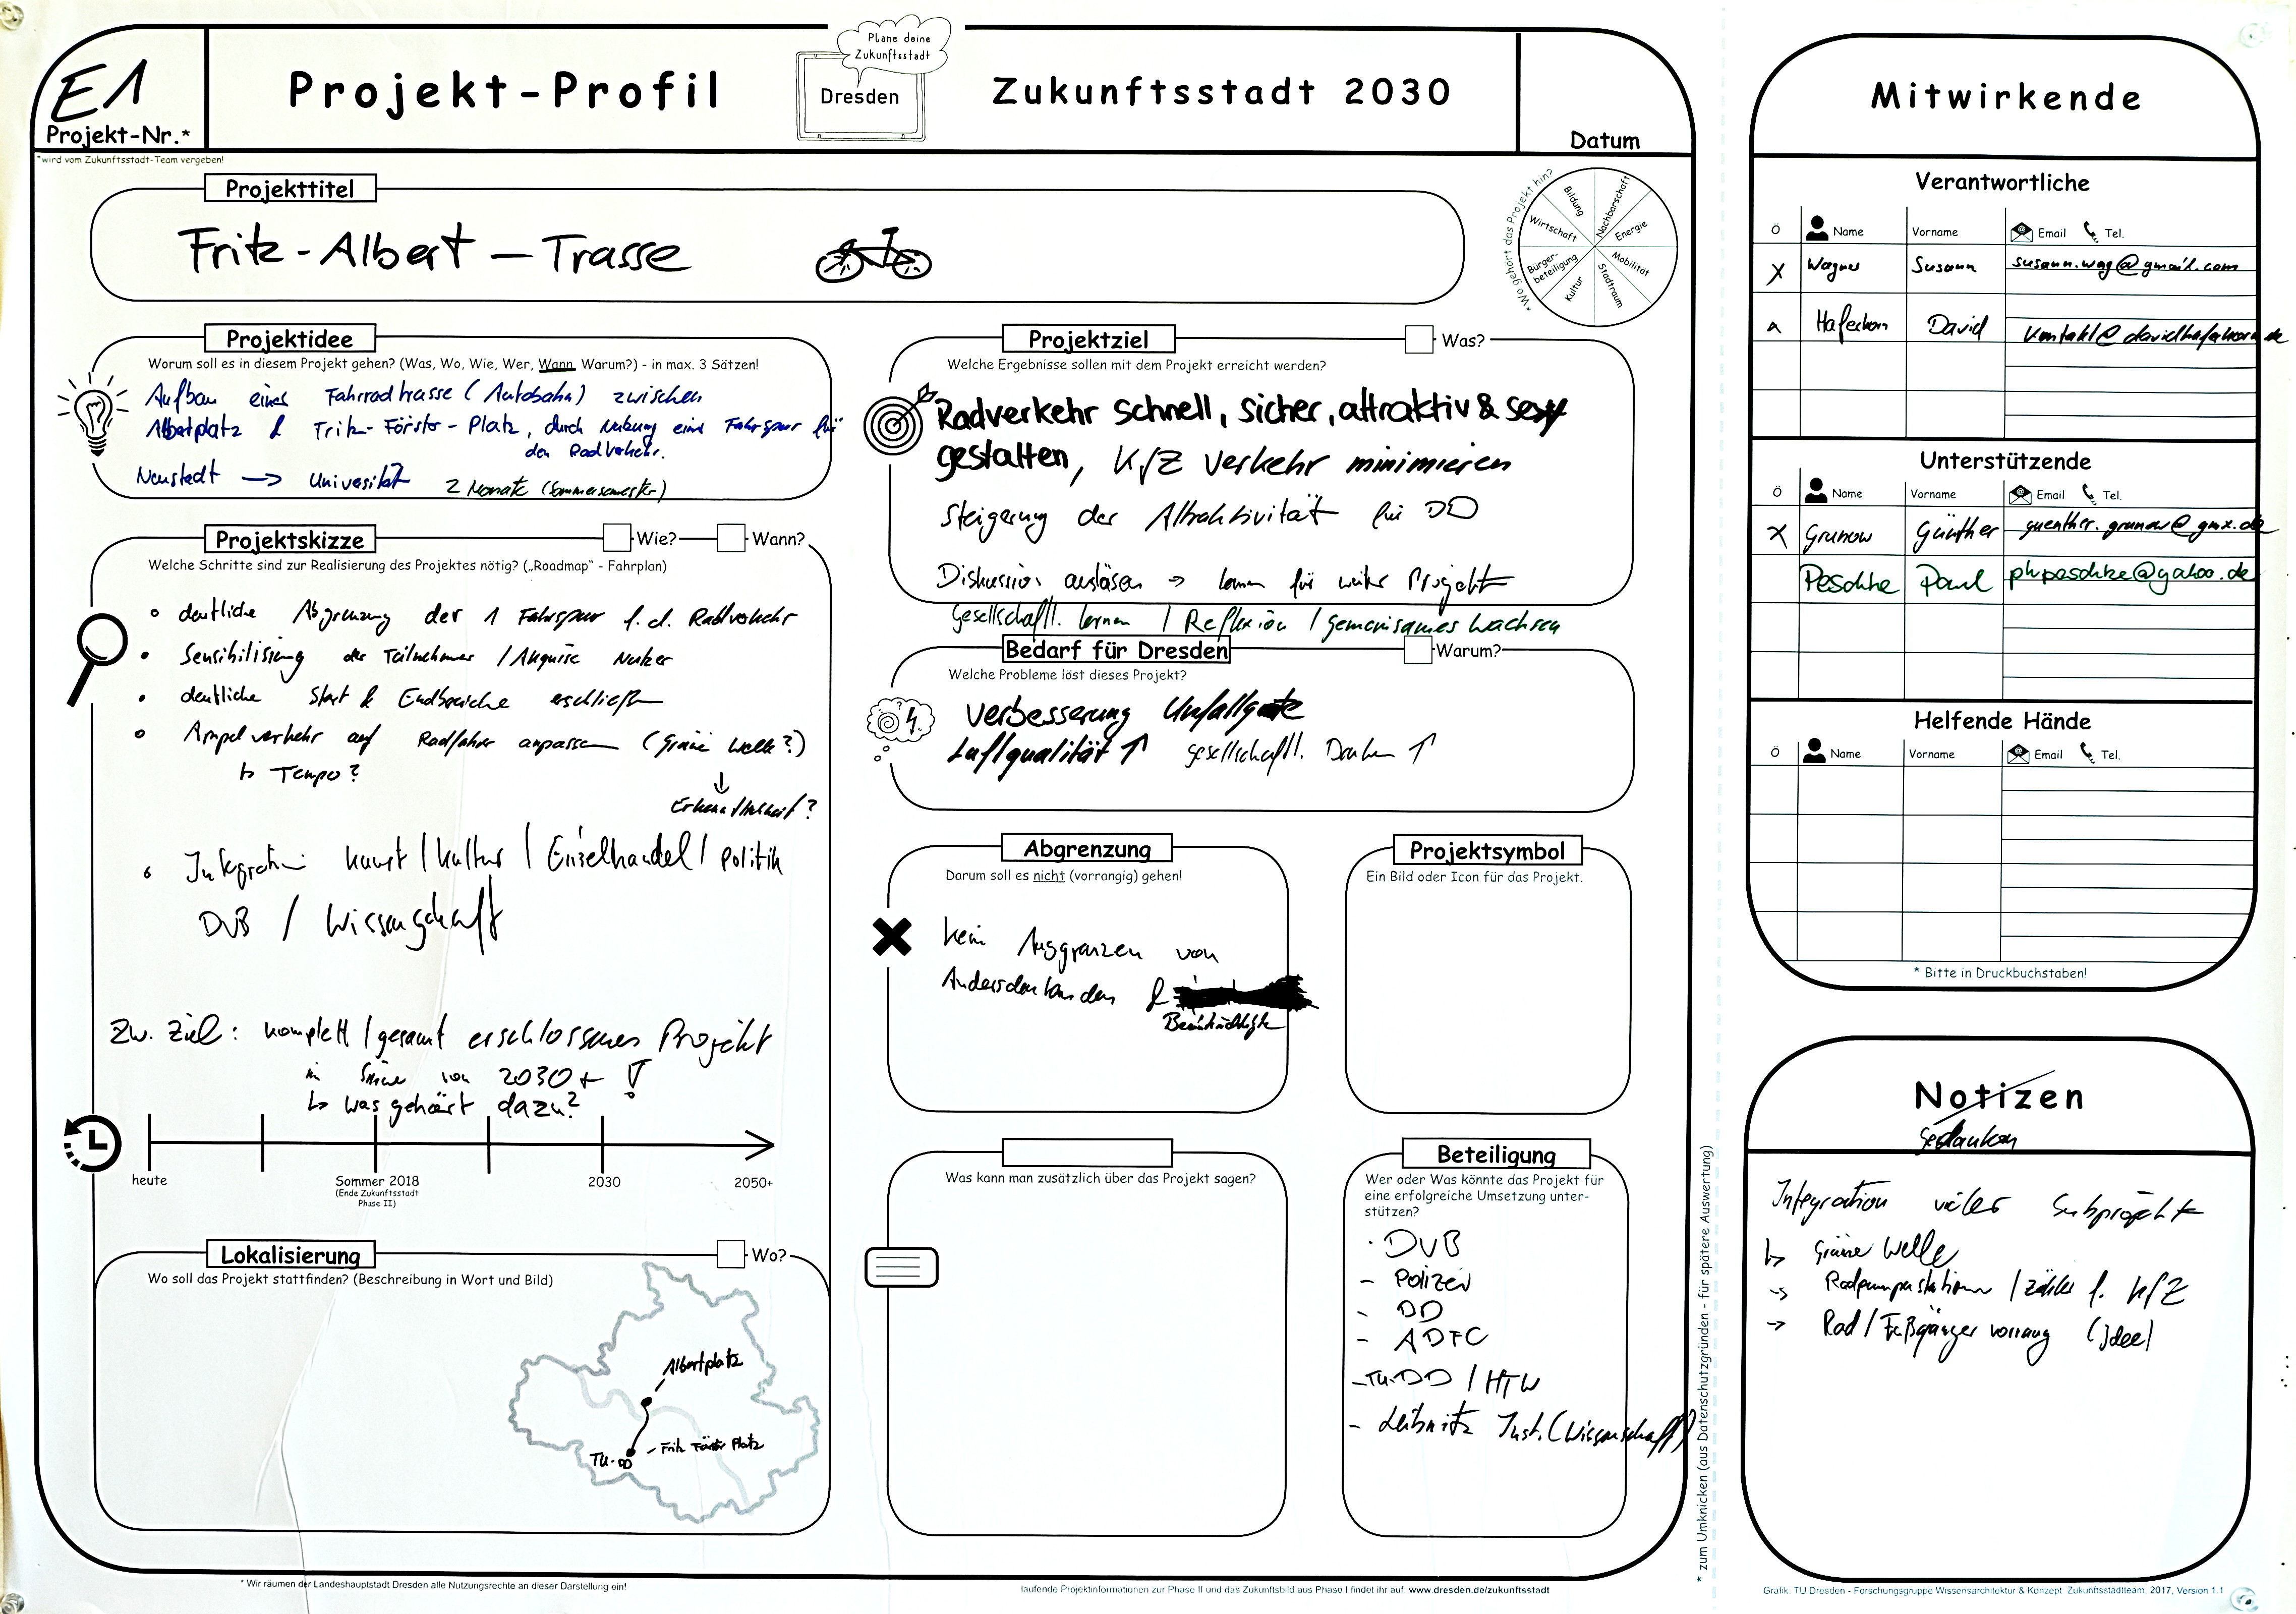 E1
Projekt-Nr.*
Projekt-Profil
Plane deine
Zukunftsstadt
Dresden
Zukunftsstadt 2030
Datum
*wird vom Zukunftsstadt-Team vergeben!
Projekttitel
Fritz-Albert-Trasse
*Wo gehört das Projekt hin?
Bildung
Nachbarschaft
Energie
Mobilität
Stadtraum
Kultur
Bürger-
beteiligung
Wirtschaft
Projektidee
Worum soll es in diesem Projekt gehen? (Was, Wo, Wie, Wer, Wann, Warum?) - in max. 3 Sätzen!
Aufbau einer Fahrradtrasse (Autobahn) zwischen
Albertplatz & Fritz-Förster-Platz, durch Nutzung eine Fahrspur für
den Radverkehr.
Neustadt → Universität 2 Monate (Sommersemester)
Projektskizze
Wie?
Wann?
Welche Schritte sind zur Realisierung des Projektes nötig? („Roadmap“ - Fahrplan)
deutliche Abgrenzung der 1 Fahrspur f. d. Radverkehr
Sensibilisierung der Teilnehmer / Akquise Nutzer
deutliche Start & Endbereiche erschließen
Ampelverkehr auf Radfahrer anpassen (Grüne Welle?)
↳ Tempo?
↓
Erkenntlichkeit?
Integration Kunst / Kultur / Einzelhandel / Politik
DVB / Wissenschaft
Zw. Ziel: komplett / gesamt erschlossenes Projekt
im Sinne von 2030+ !
↳ was gehört dazu?
heute
Sommer 2018
(Ende Zukunftsstadt
Phase II)
2030
2050+
Lokalisierung
Wo?
Wo soll das Projekt stattfinden? (Beschreibung in Wort und Bild)
Albertplatz
Fritz Förster Platz
TU-DD
Projektziel
Was?
Welche Ergebnisse sollen mit dem Projekt erreicht werden?
Radverkehr schnell, sicher, attraktiv & sexy
gestalten, KfZ Verkehr minimieren
Steigerung der Attraktivität für DD
Diskussion auslösen → lernen für weitere Projekte
Gesellschaftl. lernen / Reflexion / gemeinsames Wachsen
Bedarf für Dresden
Warum?
Welche Probleme löst dieses Projekt?
Verbesserung
Luftqualität ↑ gesellschaftl. Denken ↑
Abgrenzung
Darum soll es nicht (vorrangig) gehen!
kein Ausgrenzen von
Andersdenkenden &
Beeinträchtigte
Projektsymbol
Ein Bild oder Icon für das Projekt.
Was kann man zusätzlich über das Projekt sagen?
Beteiligung
Wer oder Was könnte das Projekt für
eine erfolgreiche Umsetzung unter-
stützen?
- DVB
- Polizei
- DD
- ADFC
- TU-DD / HTW
- Leibnitz Inst. (Wissenschaft)
* zum Umknicken (aus Datenschutzgründen - für spätere Auswertung)
* Wir räumen der Landeshauptstadt Dresden alle Nutzungsrechte an dieser Darstellung ein!
laufende Projektinformationen zur Phase II und das Zukunftsbild aus Phase I findet ihr auf: www.dresden.de/zukunftsstadt
Mitwirkende
Verantwortliche
Ö Name Vorname Email Tel.
X Wagner Susann susann.wag@gmail.com
Haferkorn David kontakt@davidhaferkorn.de
Unterstützende
Ö Name Vorname Email Tel.
X Grunow Günther guenther.grunow@gmx.de
Peschke Paul phpeschke@yahoo.de
Helfende Hände
Ö Name Vorname Email Tel.
* Bitte in Druckbuchstaben!
Notizen
Gedanken
Integration vieler Subprojekte
↳ Grüne Welle
→ Radpumpstationen / Zähler f. KfZ
→ Rad / Fußgänger vorrang (Idee)
Grafik: TU Dresden - Forschungsgruppe Wissensarchitektur & Konzept Zukunftsstadtteam, 2017, Version 1.1